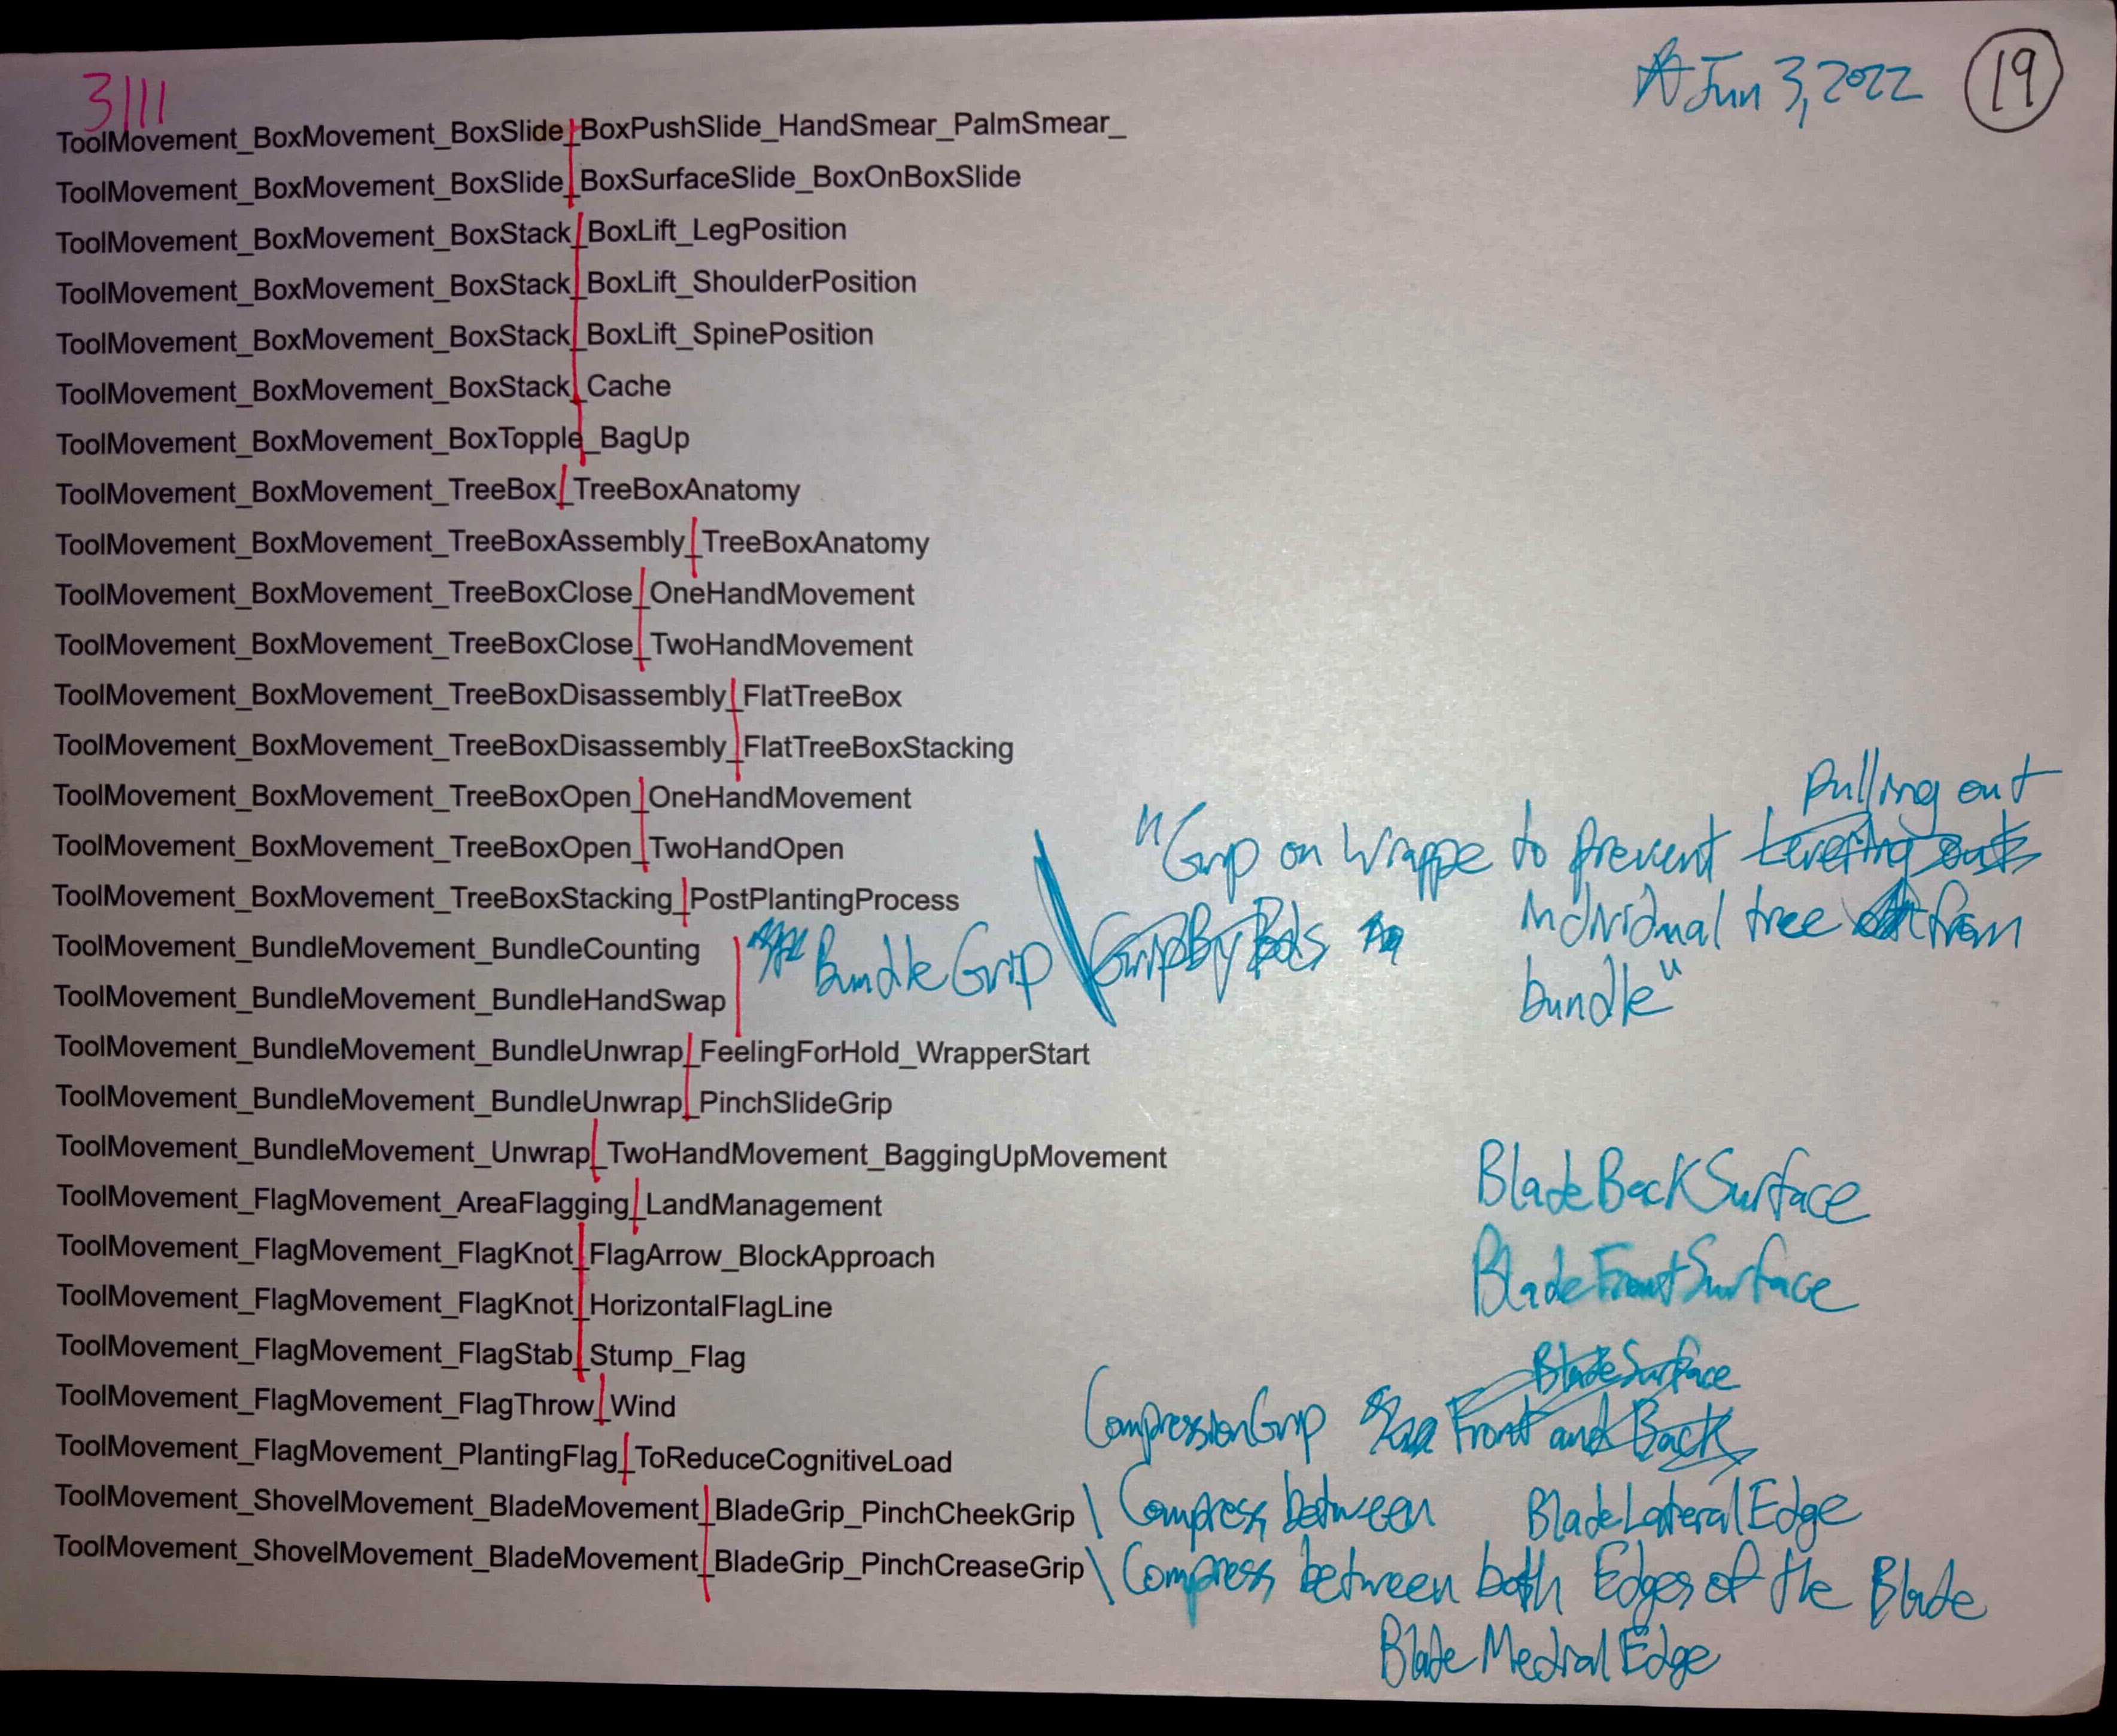 3111
Jun 3, 2022 19
ToolMovement_BoxMovement_BoxSlide_BoxPushSlide_HandSmear_PalmSmear_
ToolMovement_BoxMovement_BoxSlide_BoxSurfaceSlide_BoxOnBoxSlide
ToolMovement_BoxMovement_BoxStack_BoxLift_LegPosition
ToolMovement_BoxMovement_BoxStack_BoxLift_ShoulderPosition
ToolMovement_BoxMovement_BoxStack_BoxLift_SpinePosition
ToolMovement_BoxMovement_BoxStack_Cache
ToolMovement_BoxMovement_BoxTopple_BagUp
ToolMovement_BoxMovement_TreeBox_TreeBoxAnatomy
ToolMovement_BoxMovement_TreeBoxAssembly_TreeBoxAnatomy
ToolMovement_BoxMovement_TreeBoxClose_OneHandMovement
ToolMovement_BoxMovement_TreeBoxClose_TwoHandMovement
ToolMovement_BoxMovement_TreeBoxDisassembly_FlatTreeBox
ToolMovement_BoxMovement_TreeBoxDisassembly_FlatTreeBoxStacking
ToolMovement_BoxMovement_TreeBoxOpen_OneHandMovement
ToolMovement_BoxMovement_TreeBoxOpen_TwoHandOpen
ToolMovement_BoxMovement_TreeBoxStacking_PostPlantingProcess
ToolMovement_BundleMovement_BundleCounting
ToolMovement_BundleMovement_BundleHandSwap
BundleGrip \ GripByBods
pulling out
"Grip on Wrappe to prevent Levering out
individual tree from
bundle"
ToolMovement_BundleMovement_BundleUnwrap_FeelingForHold_WrapperStart
ToolMovement_BundleMovement_BundleUnwrap_PinchSlideGrip
ToolMovement_BundleMovement_Unwrap_TwoHandMovement_BaggingUpMovement
ToolMovement_FlagMovement_AreaFlagging_LandManagement
ToolMovement_FlagMovement_FlagKnot_FlagArrow_BlockApproach
ToolMovement_FlagMovement_FlagKnot_HorizontalFlagLine
ToolMovement_FlagMovement_FlagStab_Stump_Flag
ToolMovement_FlagMovement_FlagThrow_Wind
ToolMovement_FlagMovement_PlantingFlag_ToReduceCognitiveLoad
BladeBackSurface
BladeFrontSurface
BladeSurface
CompressionGrip Front and Back
ToolMovement_ShovelMovement_BladeMovement_BladeGrip_PinchCheekGrip \ Compress between BladeLateralEdge
ToolMovement_ShovelMovement_BladeMovement_BladeGrip_PinchCreaseGrip \ Compress between both Edges of the Blade
BladeMedialEdge